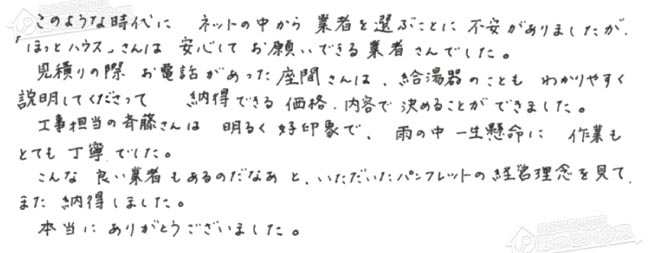 このような時代に ネットの中から 業者を選ぶことに 不安がありましたが、
「ほっとハウス」さんは 安心して お願いできる業者さんでした。
見積りの際 お電話があった座間さんは、給湯器のことも わかりやすく
説明してくださって 納得できる 価格、内容で 決めることができました。
工事担当の斉藤さんは 明るく 好印象で、雨の中 一生懸命に 作業も
とても 丁寧でした。
こんな 良い業者もあるのだなあ と、いただいたパンフレットの経営理念を見て、
また 納得しました。
本当に ありがとうございました。
ほっとハウス